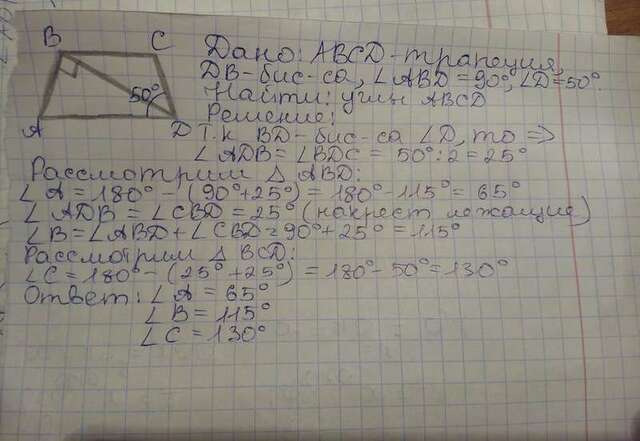 B C
50°
A D
Дано: ABCD-трапеция,
DB-бис-са, ∠ABD=90°, ∠D=50°.
Найти: углы ABCD
Решение:
Т.к BD-бис-са ∠D, то =>
∠ADB=∠BDC = 50°:2=25°
Рассмотрим Δ ABD:
∠A=180°-(90°+25°)=180°-115°=65°
∠ADB=∠CBD=25° (накрест лежащие)
∠B=∠ABD+∠CBD=90°+25°=115°
Рассмотрим Δ BCD:
∠C=180°-(25°+25°)=180°-50°=130°
Ответ: ∠A=65°
∠B=115°
∠C=130°